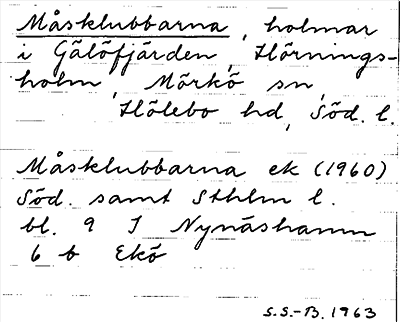 Måsklubbarna, holmar
i Gälöfjärden, Hörnings-
holm, Mörkö sn,
Hölebo hd, Söd. l.
Måsklubbarna ek (1960)
Söd. samt Sthlm l.
bl. 9 I Nynäshamn
6 b Ekö
S.S.-B. 1963